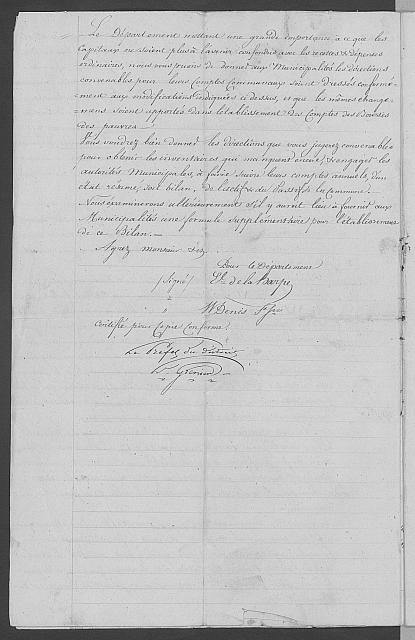 Le Département mettant une grande importance à ce que les
Capitaux ne soient plus à l'avenir confondus avec les recettes & dépenses
ordinaires, nous vous prions de donner aux Municipalités les directions
convenables pour leurs Comptes Communaux soient dressés conformé-
ment aux modifications indiquées ci dessus, et que les mêmes change-
mens soient apportés dans l'établissement des Comptes des Bourses
des pauvres.
Vous voudrez bien donner les directions que vous jugerez convenables
pour obtenir les inventaires qui manquent encore, & engager les
autorités Municipales, à faire suivre leurs comptes annuels, d'un
état résumé, soit bilan, de l'actif & du Passif de la commune.
Nous examinerons ultérieurement s'il y aurait lieu à fournir aux
Municipalités une formule supplémentaire pour l'établissement
de ce Bilan.
Agréez Monsieur
Pour le Département
(Signé) de la Harpe
" W Denis
Certifié pour Copie Conforme
Le Préfet du district
Grenier